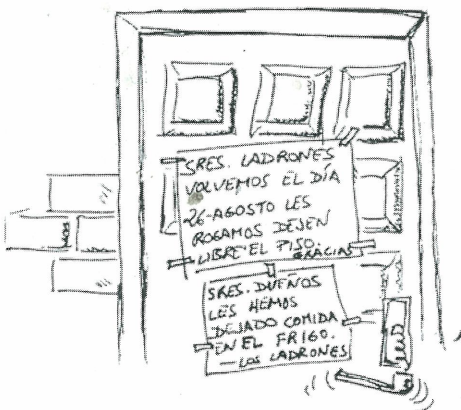 SRES. LADRONES
VOLVEMOS EL DÍA
26-AGOSTO LES
ROGAMOS DEJEN
LIBRE EL PISO.
GRACIAS
SRES. DUEÑOS
LES HEMOS
DEJADO COMIDA
EN EL FRIGO.
— LOS LADRONES